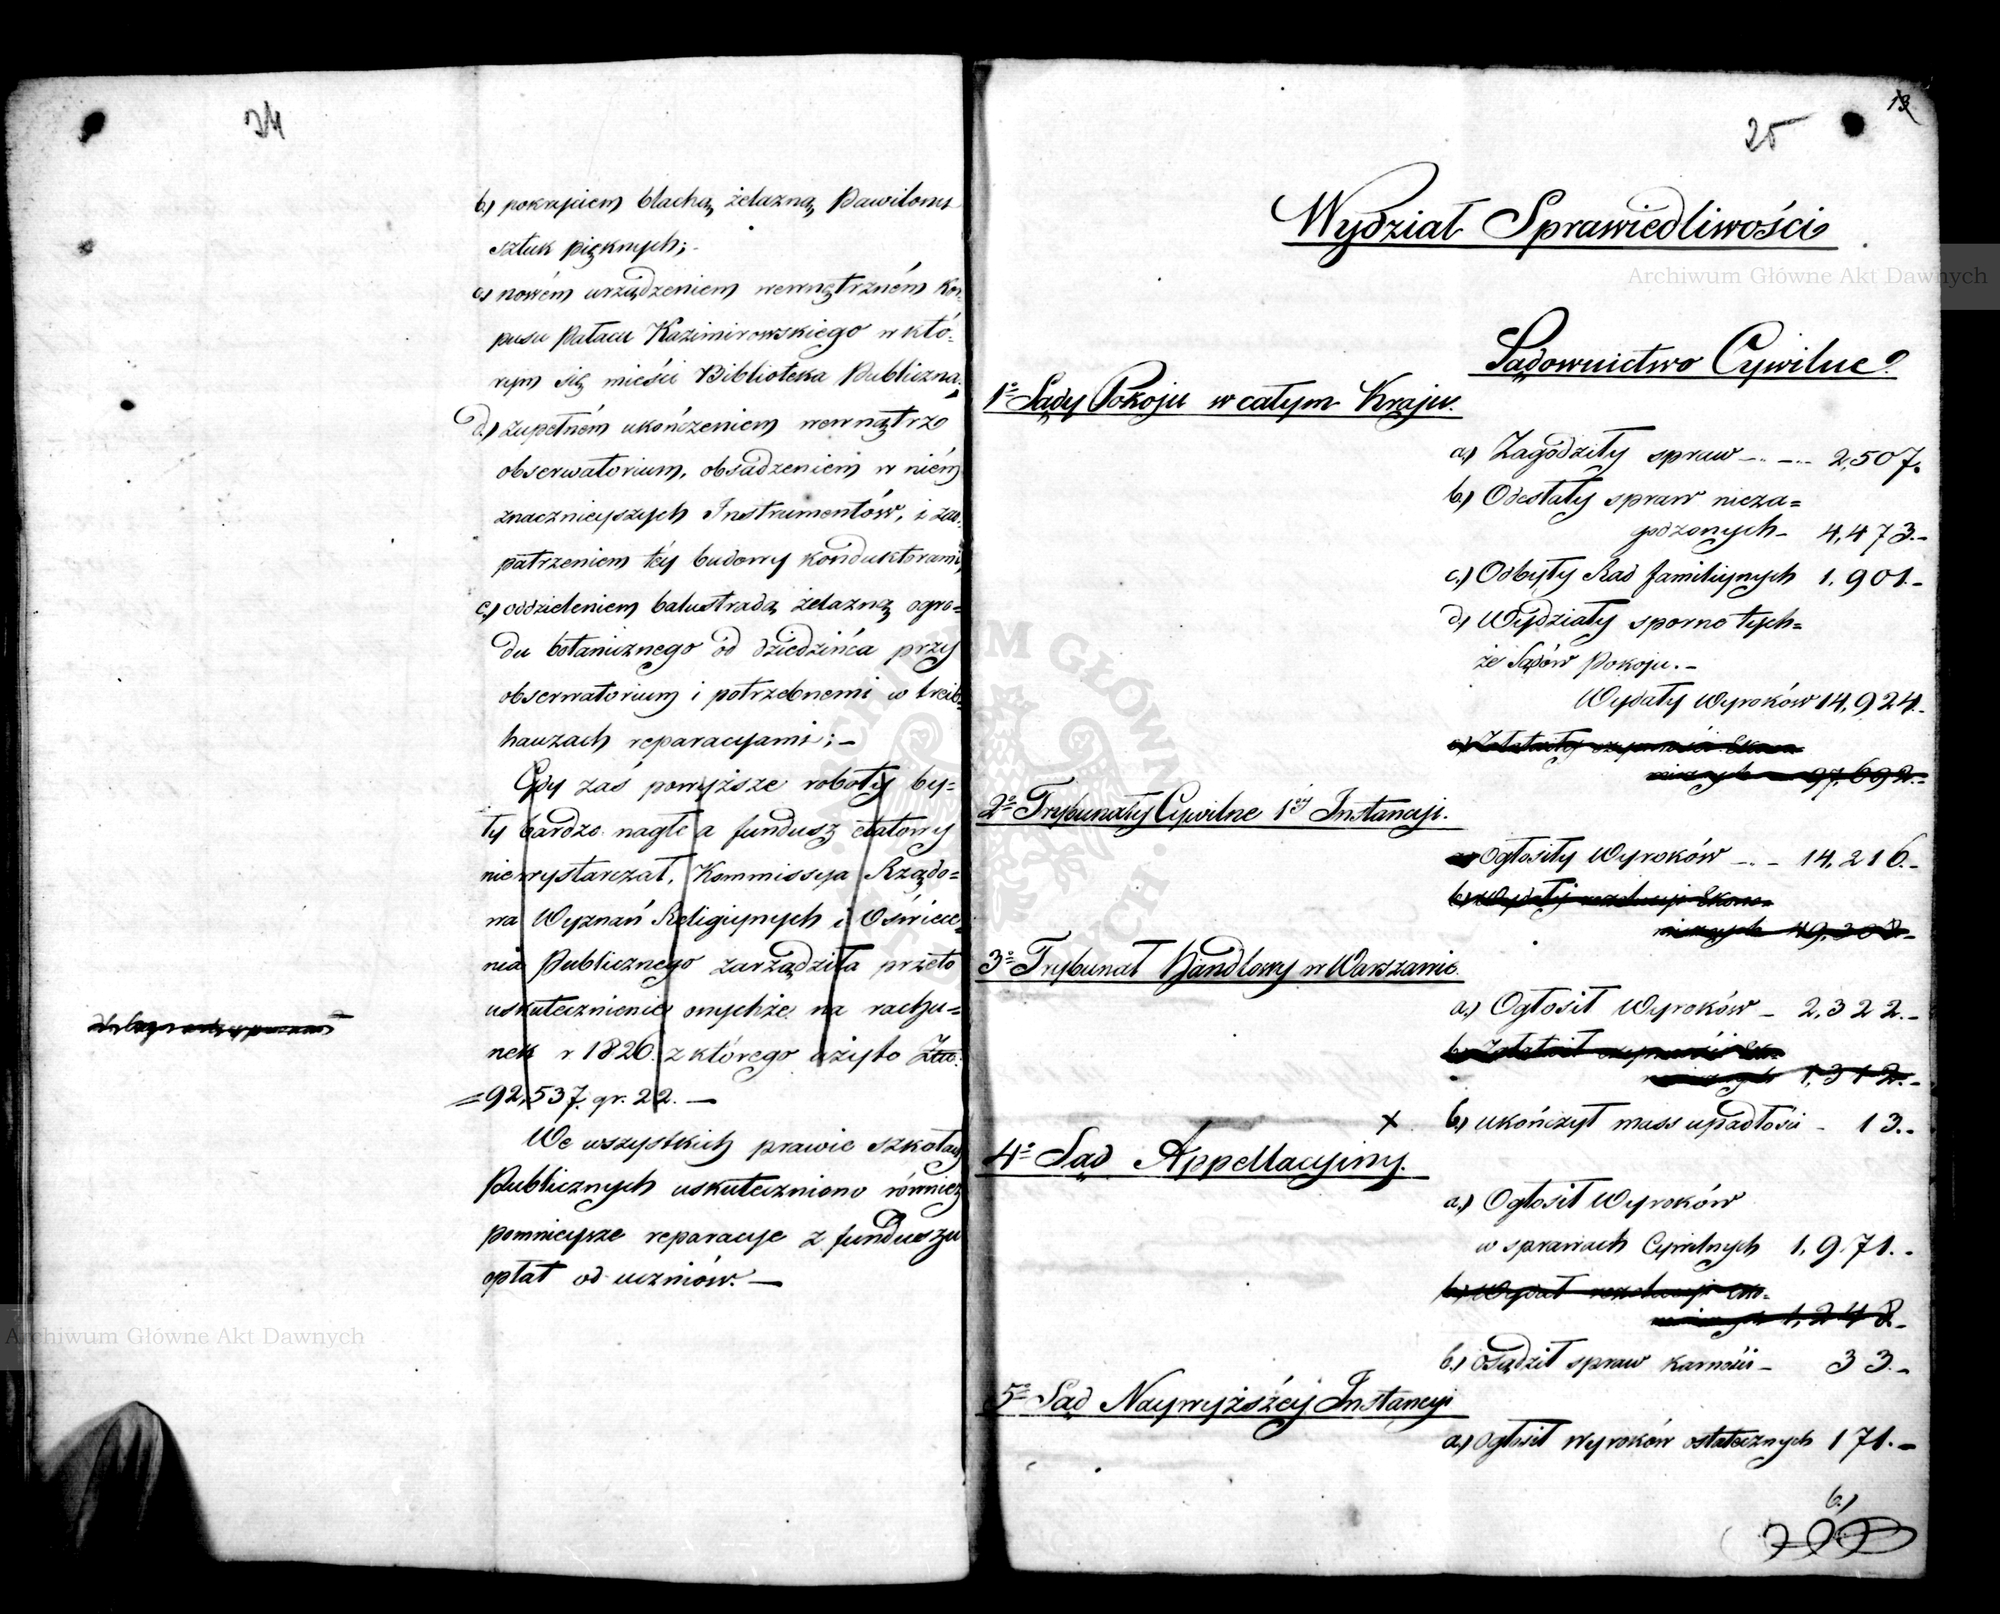 24
b) pokryciem blachą żelazną Pawilonu
sztuk pięknych;
c) nowém urządzeniem wewnętrzném kor-
pusu Pałacu Kazimirowskiego w któ-
rym się mieści Biblioteka Publiczna.
d.) zupełném ukończeniem wewnątrz
obserwatorium, obsadzeniem w niém
znacznieyszych Instrumentów, i zao-
patrzeniem téy budowy konduktorami,
e) oddzieleniem balustradą żelazną ogro=
du botanicznego od dziedzińca przy
obserwatorium i potrzebnemi w treib-
hauzach reparacyami; –
Gdy zaś powyższe roboty by-
ły bardzo nagłe a fundusz etatowy
niewystarczał, Kommissya Rządo=
wa Wyznań Religiynych i Oświece-
nia Publicznego zarządziła przeto
uskutecznienie onychże na rachu=
nek r 1826. z którego użyto Złp.
=92,537. gr. 22. –
We wszystkich prawie szkołach
Publicznych uskuteczniono również
pomnieysze reparacye z funduszu
opłat od uczniów. –
13
25
Wydział Sprawiedliwości
Sądownictwo Cywilne.
1º Sądy Pokoju w całym Kraju.
a) Zagodziły spraw – .. – ... 2,507.
b) Odesłały spraw nieza=
godzonych – 4,473. –
c.) Odbyły Rad familiynych 1,901. –
d) Wydziały sporne tych=
że Sądów Pokoju. –
Wydały Wyroków 14,924. –
97,692. –
2º Trybunały Cywilne 1éy Instancji.
Ogłosiły Wyroków – .. – 14,216. –
b) Wydały rezolucyi Ekono=
micznych 49,303. –
3º Trybunał Handlowy w Warszawie.
a.) Ogłosił Wyroków – 2,322. –
1,312. –
x b) ukończył mass upadłości – 13. –
4º Sąd Appellacyiny.
a.) Ogłosił Wyroków
w sprawach Cywilnych 1,971. –
b) Wydał rezolucyi Eko=
nomicznych 1,248. –
b.) osądził spraw karności – 33. –
5º Sąd Naywyższéy Instancyi
a) Ogłosił wyroków ostatecznych 171. –
b.)
Archiwum Główne Akt Dawnych
Archiwum Główne Akt Dawnych